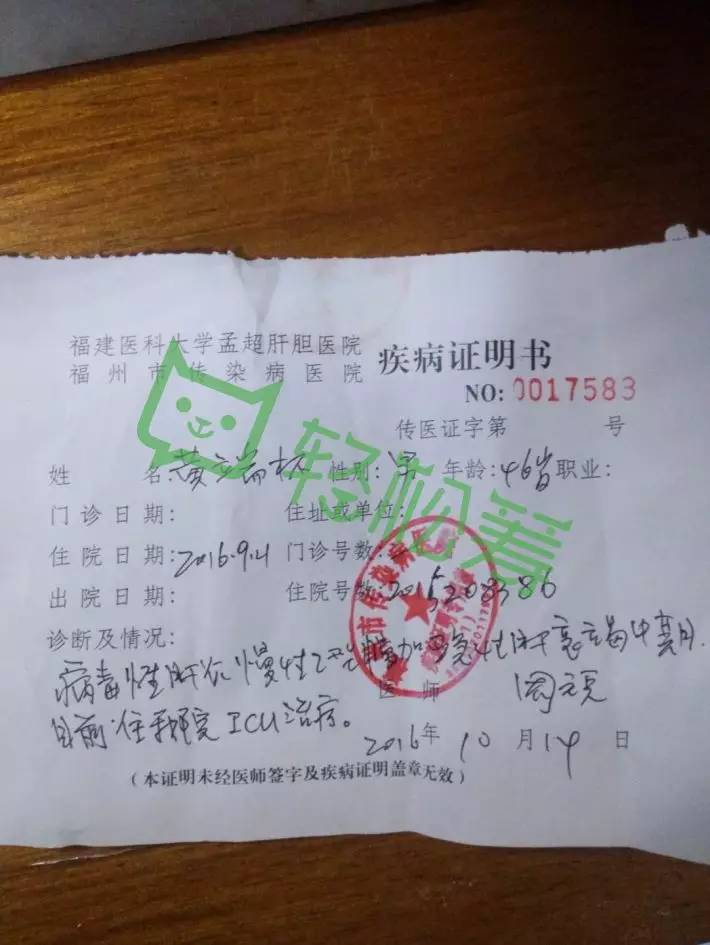 福建医科大学孟超肝胆医院
福州市传染病医院
疾病证明书
NO: 0017583
传医证字第 号
姓 名: 黄 性别: 男 年龄: 46岁 职业:
门诊日期: 住址或单位:
住院日期: 2016.9.21 门诊号数:
出院日期: 住院号数: 2015208386
诊断及情况:
病毒性肝炎 慢性乙型 加 急性肝衰竭中期.
目前住我院ICU治疗。
医师
2016年10月14日
(本证明未经医师签字及疾病证明盖章无效)
轻松筹
市传染病